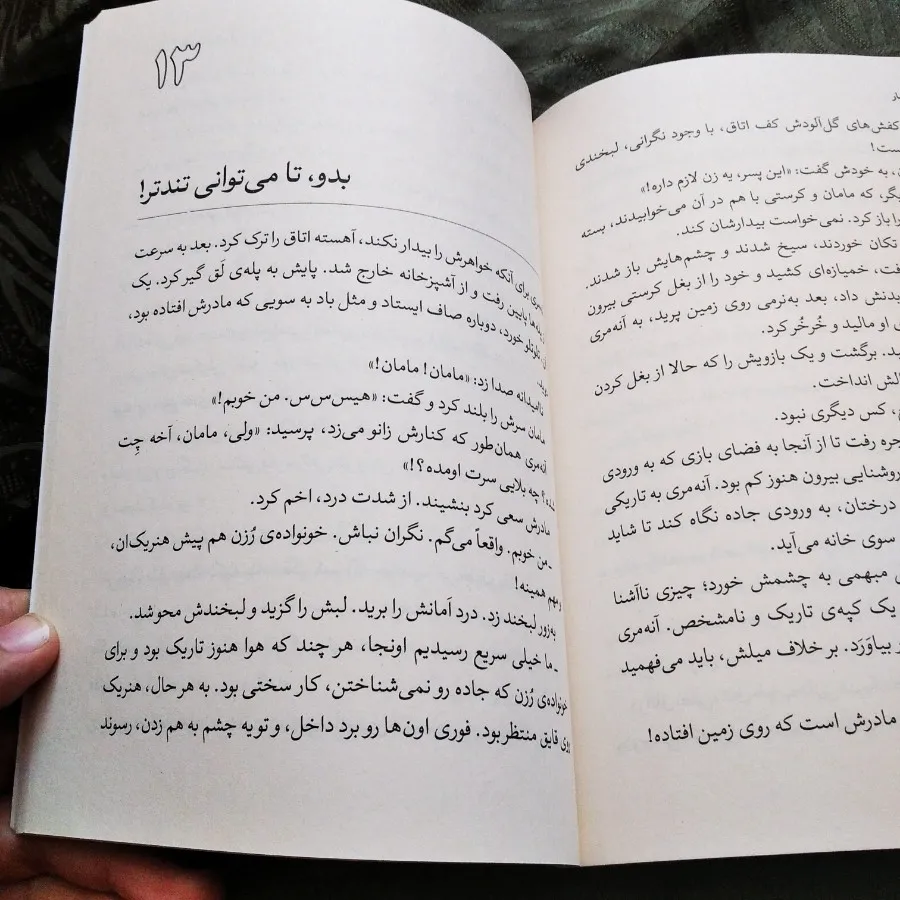 کفش‌های گل‌آلودش کف اتاق، با وجود نگرانی، لبخندی
به خودش گفت: «این پسر، یه زن لازم داره!»
که مامان و کرستی با هم در آن می‌خوابیدند، بسته
را باز کرد. نمی‌خواست بیدارشان کند.
تکان خوردند، سیخ شدند و چشم‌هایش باز شدند.
خمیازه‌ای کشید و خود را از بغل کرستی بیرون
داد، بعد به‌نرمی روی زمین پرید، به آنه‌مری
او مالید و خُرخُر کرد.
برگشت و یک بازویش را که حالا از بغل کردن
انداخت.
کس دیگری نبود.
رفت تا از آنجا به فضای بازی که به ورودی
روشنایی بیرون هنوز کم بود. آنه‌مری به تاریکی
درختان، به ورودی جاده نگاه کند تا شاید
سوی خانه می‌آید.
مبهمی به چشمش خورد؛ چیزی ناآشنا
یک کپه‌ی تاریک و نامشخص. آنه‌مری
بیاوَرَد. بر خلاف میلش، باید می‌فهمید
مادرش است که روی زمین افتاده!
۱۳
بدو، تا می‌توانی تندتر!
برای آنکه خواهرش را بیدار نکند، آهسته اتاق را ترک کرد. بعد به سرعت
پایین رفت و از آشپزخانه خارج شد. پایش به پله‌ی لَق گیر کرد. یک
تلوتلو خورد، دوباره صاف ایستاد و مثل باد به سویی که مادرش افتاده بود،
ناامیدانه صدا زد: «مامان! مامان!»
مامان سرش را بلند کرد و گفت: «هیس‌س‌س. من خوبم!»
آنه‌مری همان‌طور که کنارش زانو می‌زد، پرسید: «ولی، مامان، آخه چِت
شده؟ چه بلایی سرت اومده؟!»
مادرش سعی کرد بنشیند. از شدت درد، اخم کرد.
ـ من خوبم. واقعاً می‌گم. نگران نباش. خونواده‌ی رُزن هم پیش هنریک‌ان،
مهم همینه!
به‌زور لبخند زد. درد اَمانش را برید. لبش را گزید و لبخندش محو شد.
ـ ما خیلی سریع رسیدیم اونجا، هر چند که هوا هنوز تاریک بود و برای
خونواده‌ی رُزن که جاده رو نمی‌شناختن، کار سختی بود. به هر حال، هنریک
روی قایق منتظر بود. فوری اون‌ها رو برد داخل، و تو یه چشم به هم زدن، رسوند